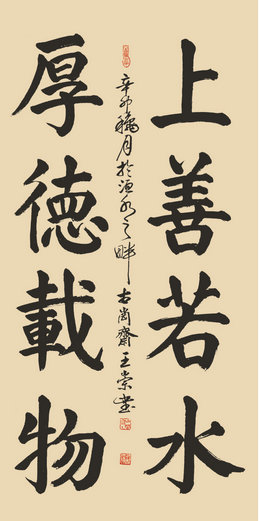 上善若水
厚德載物
辛卯穐月於洹水之畔古尚齋王崇書